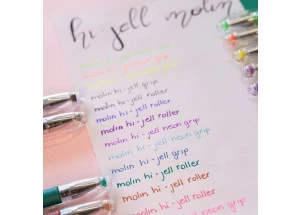 hi-jell molin
molin hi-jell grip
molin hi-jell roller
molin hi-jell roller
molin hi-jell roller
molin hi-jell neon grip
molin hi-jell grip
molin hi-jell roller
molin hi-jell roller
molin hi-jell neon grip